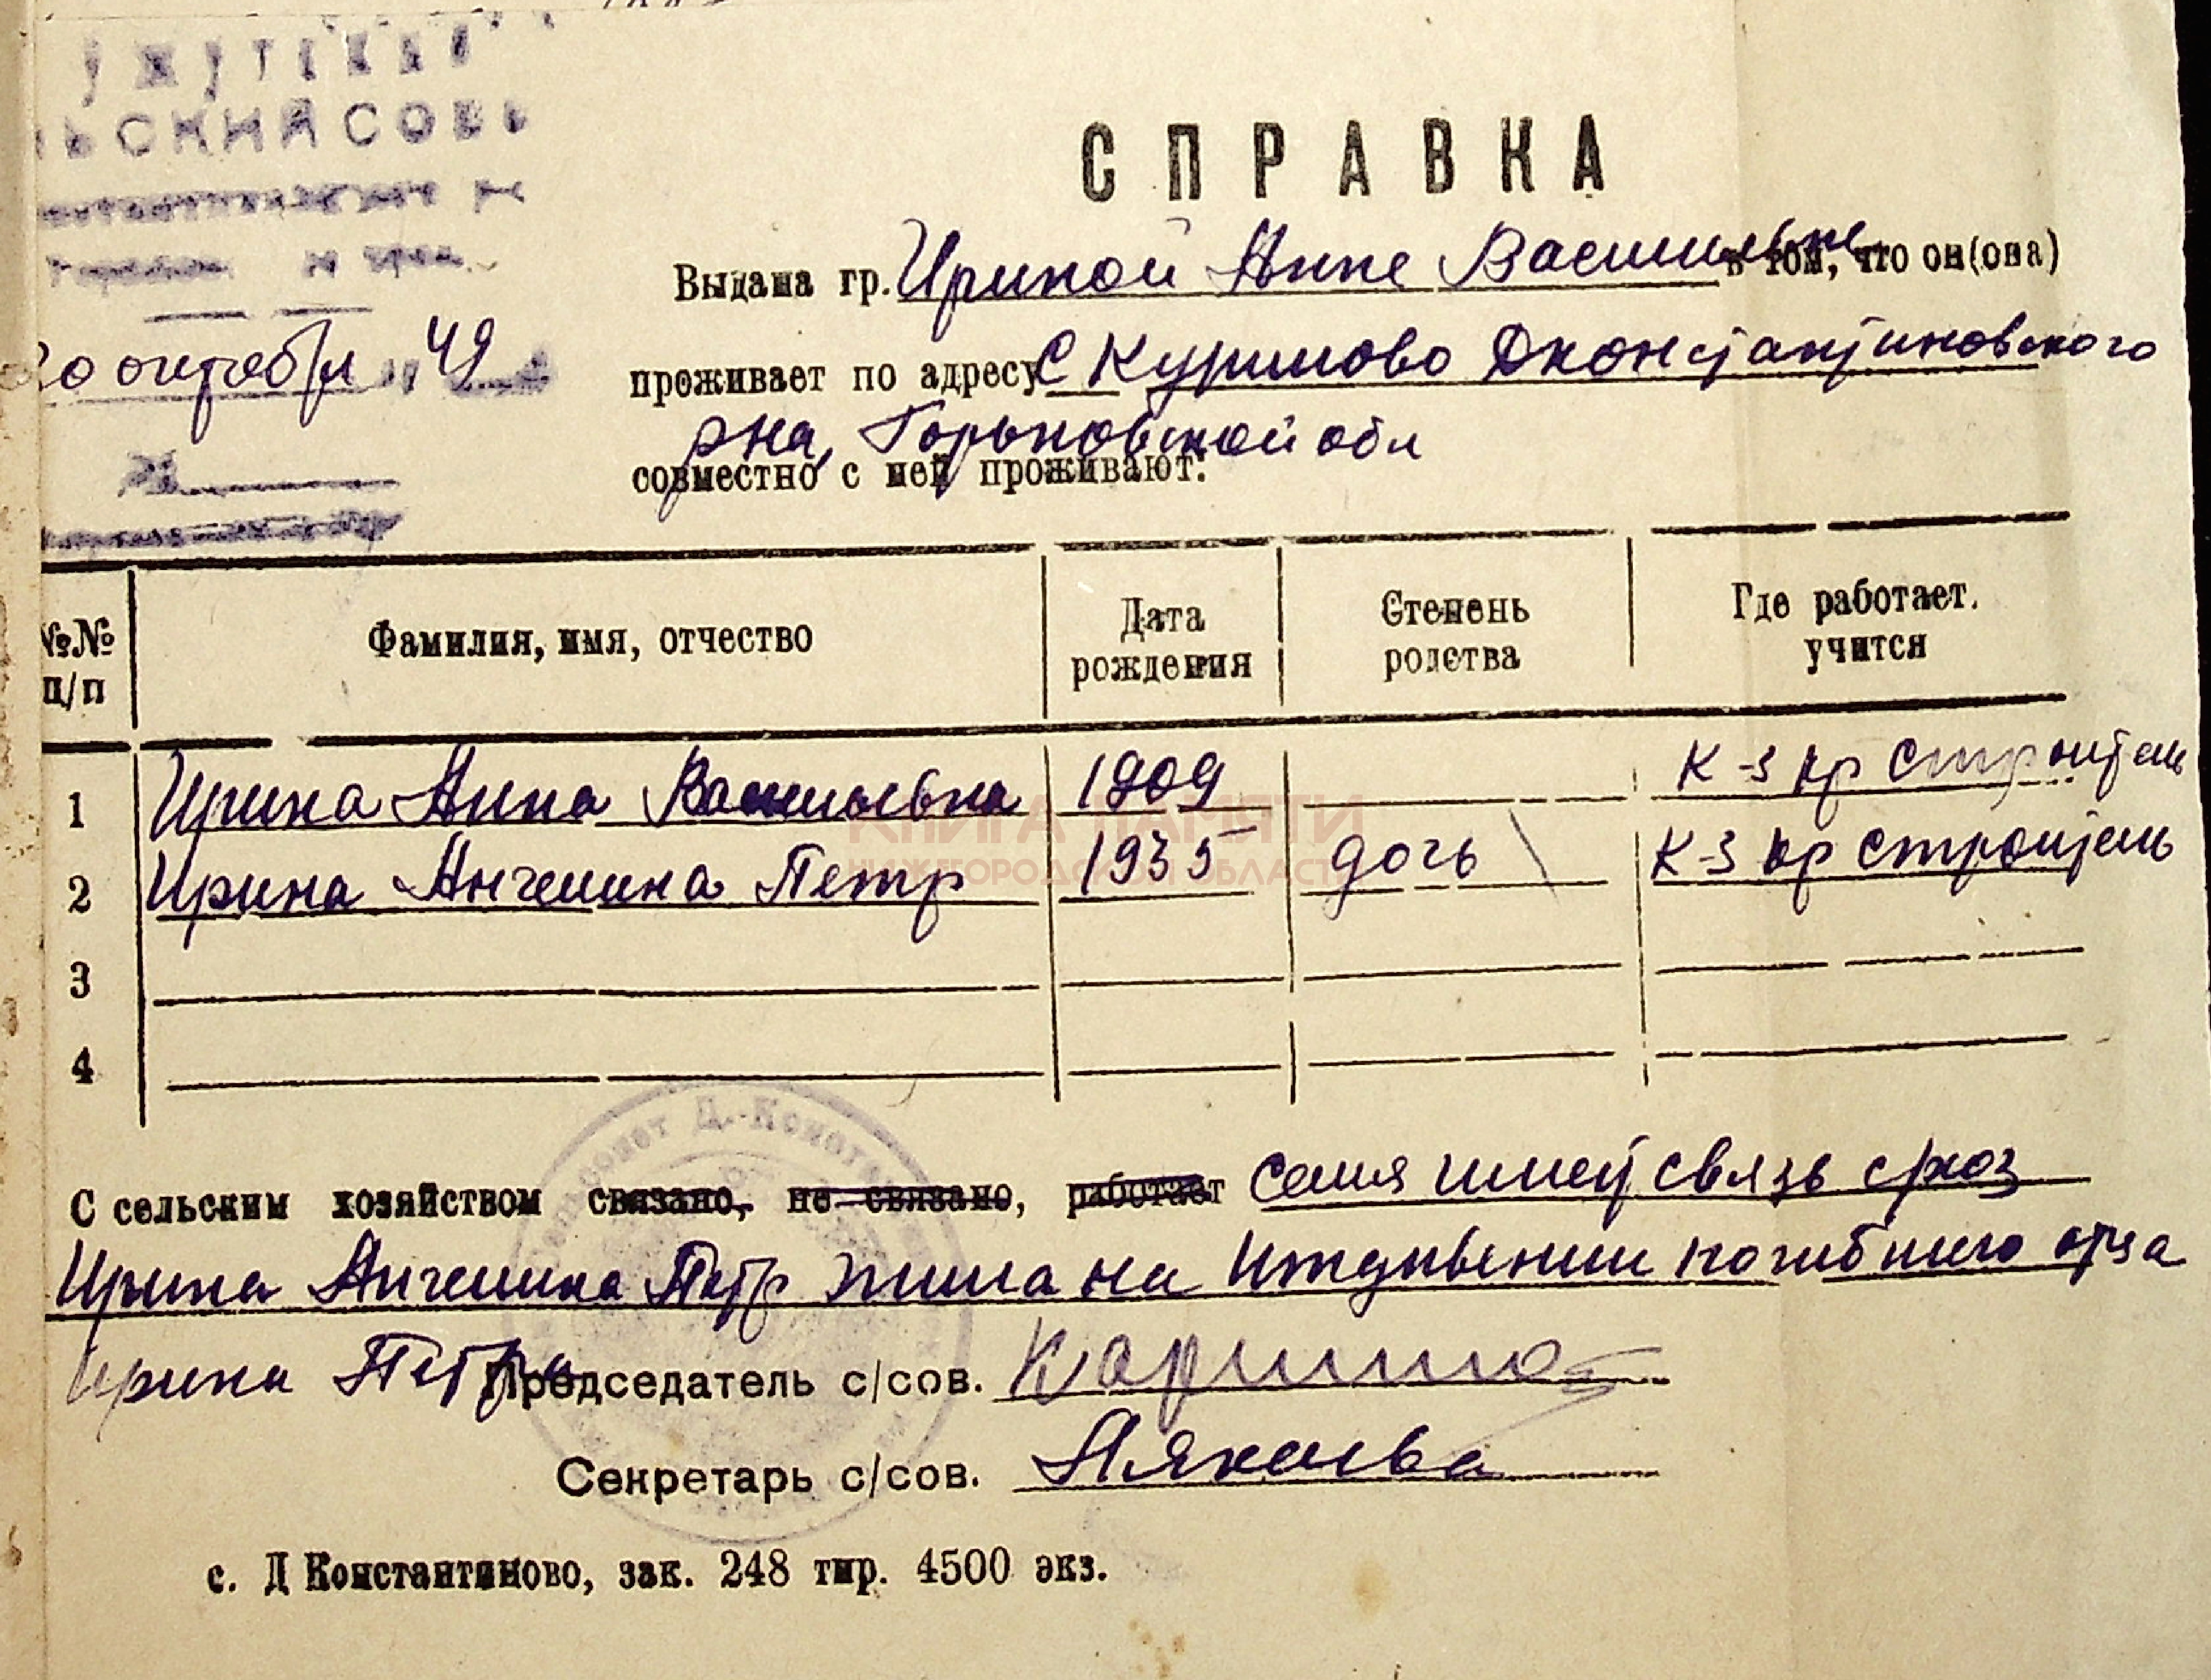 ЬСКИЙ СОВЕ
СПРАВКА
Выдана гр. Ириной Анне Васильевне в том, что он(она)
20 октября 49
проживает по адресу С Куримово Дконстантиновского
рна, Горьковской обл
совместно с ней проживают:
№№ п/п
Фамилия, имя, отчество
Дата рождения
Степень родства
Где работает, учится
1 Ирина Анна Васильевна 1909 К-з кр строитель
2 Ирина Ангелина Петр 1935 дочь К-з кр строитель
3
4
КНИГА ПАМЯТИ
НИЖЕГОРОДСКОЙ ОБЛАСТИ
С сельским хозяйством связано, не связано, работает Семия имеет связь
Ирина Ангелина Петр жила на погибшего отца
Ирина Петра
Председатель с/сов.
Секретарь с/сов.
с. Д Константиново, зак. 248 тир. 4500 экз.